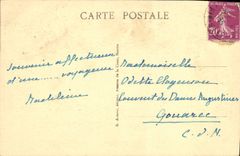 CARTE POSTALE
Souvenir affectueux
d'une voyageuse
Madeleine
Mademoiselle
Odette
Couvent des Dames Augustines
Gouarec
C. d. N.